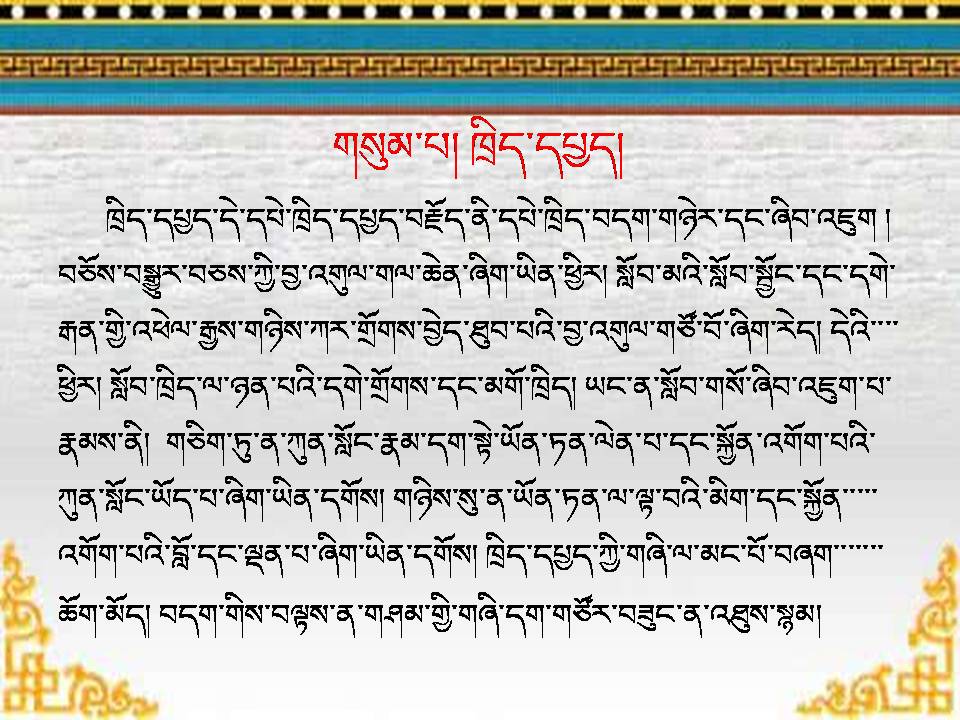 གསུམ་པ། ཁྲིད་དཔྱད།
ཁྲིད་དཔྱད་དེ་དཔེ་ཁྲིད་དཔྱད་བརྗོད་ནི་དཔེ་ཁྲིད་བདག་གཉེར་དང་ཞིབ་འཇུག །
བཅོས་བསྒྱུར་བཅས་ཀྱི་བྱ་འགུལ་གལ་ཆེན་ཞིག་ཡིན་ཕྱིར། སློབ་མའི་སློབ་སྦྱོང་དང་དགེ་
རྒན་གྱི་འཕེལ་རྒྱས་གཉིས་ཀར་གྲོགས་བྱེད་ཐུབ་པའི་བྱ་འགུལ་གཙོ་བོ་ཞིག་རེད། དེའི་་་་
ཕྱིར། སློབ་ཁྲིད་ལ་ཉན་པའི་དགེ་གྲོགས་དང་མགོ་ཁྲིད། ཡང་ན་སློབ་གསོ་ཞིབ་འཇུག་པ་
རྣམས་ནི། གཅིག་ཏུ་ན་ཀུན་སློང་རྣམ་དག་སྟེ་ཡོན་ཏན་ལེན་པ་དང་སྐྱོན་འགོག་པའི་
ཀུན་སློང་ཡོད་པ་ཞིག་ཡིན་དགོས། གཉིས་སུ་ན་ཡོན་ཏན་ལ་ལྟ་བའི་མིག་དང་སྐྱོན་་་་་
འགོག་པའི་བློ་དང་ལྡན་པ་ཞིག་ཡིན་དགོས། ཁྲིད་དཔྱད་ཀྱི་གཞི་ལ་མང་པོ་བཞག་་་་་་་
ཆོག་མོད། བདག་གིས་བལྟས་ན་གཤམ་གྱི་གཞི་དག་གཙོར་བཟུང་ན་འཐུས་སྙམ།